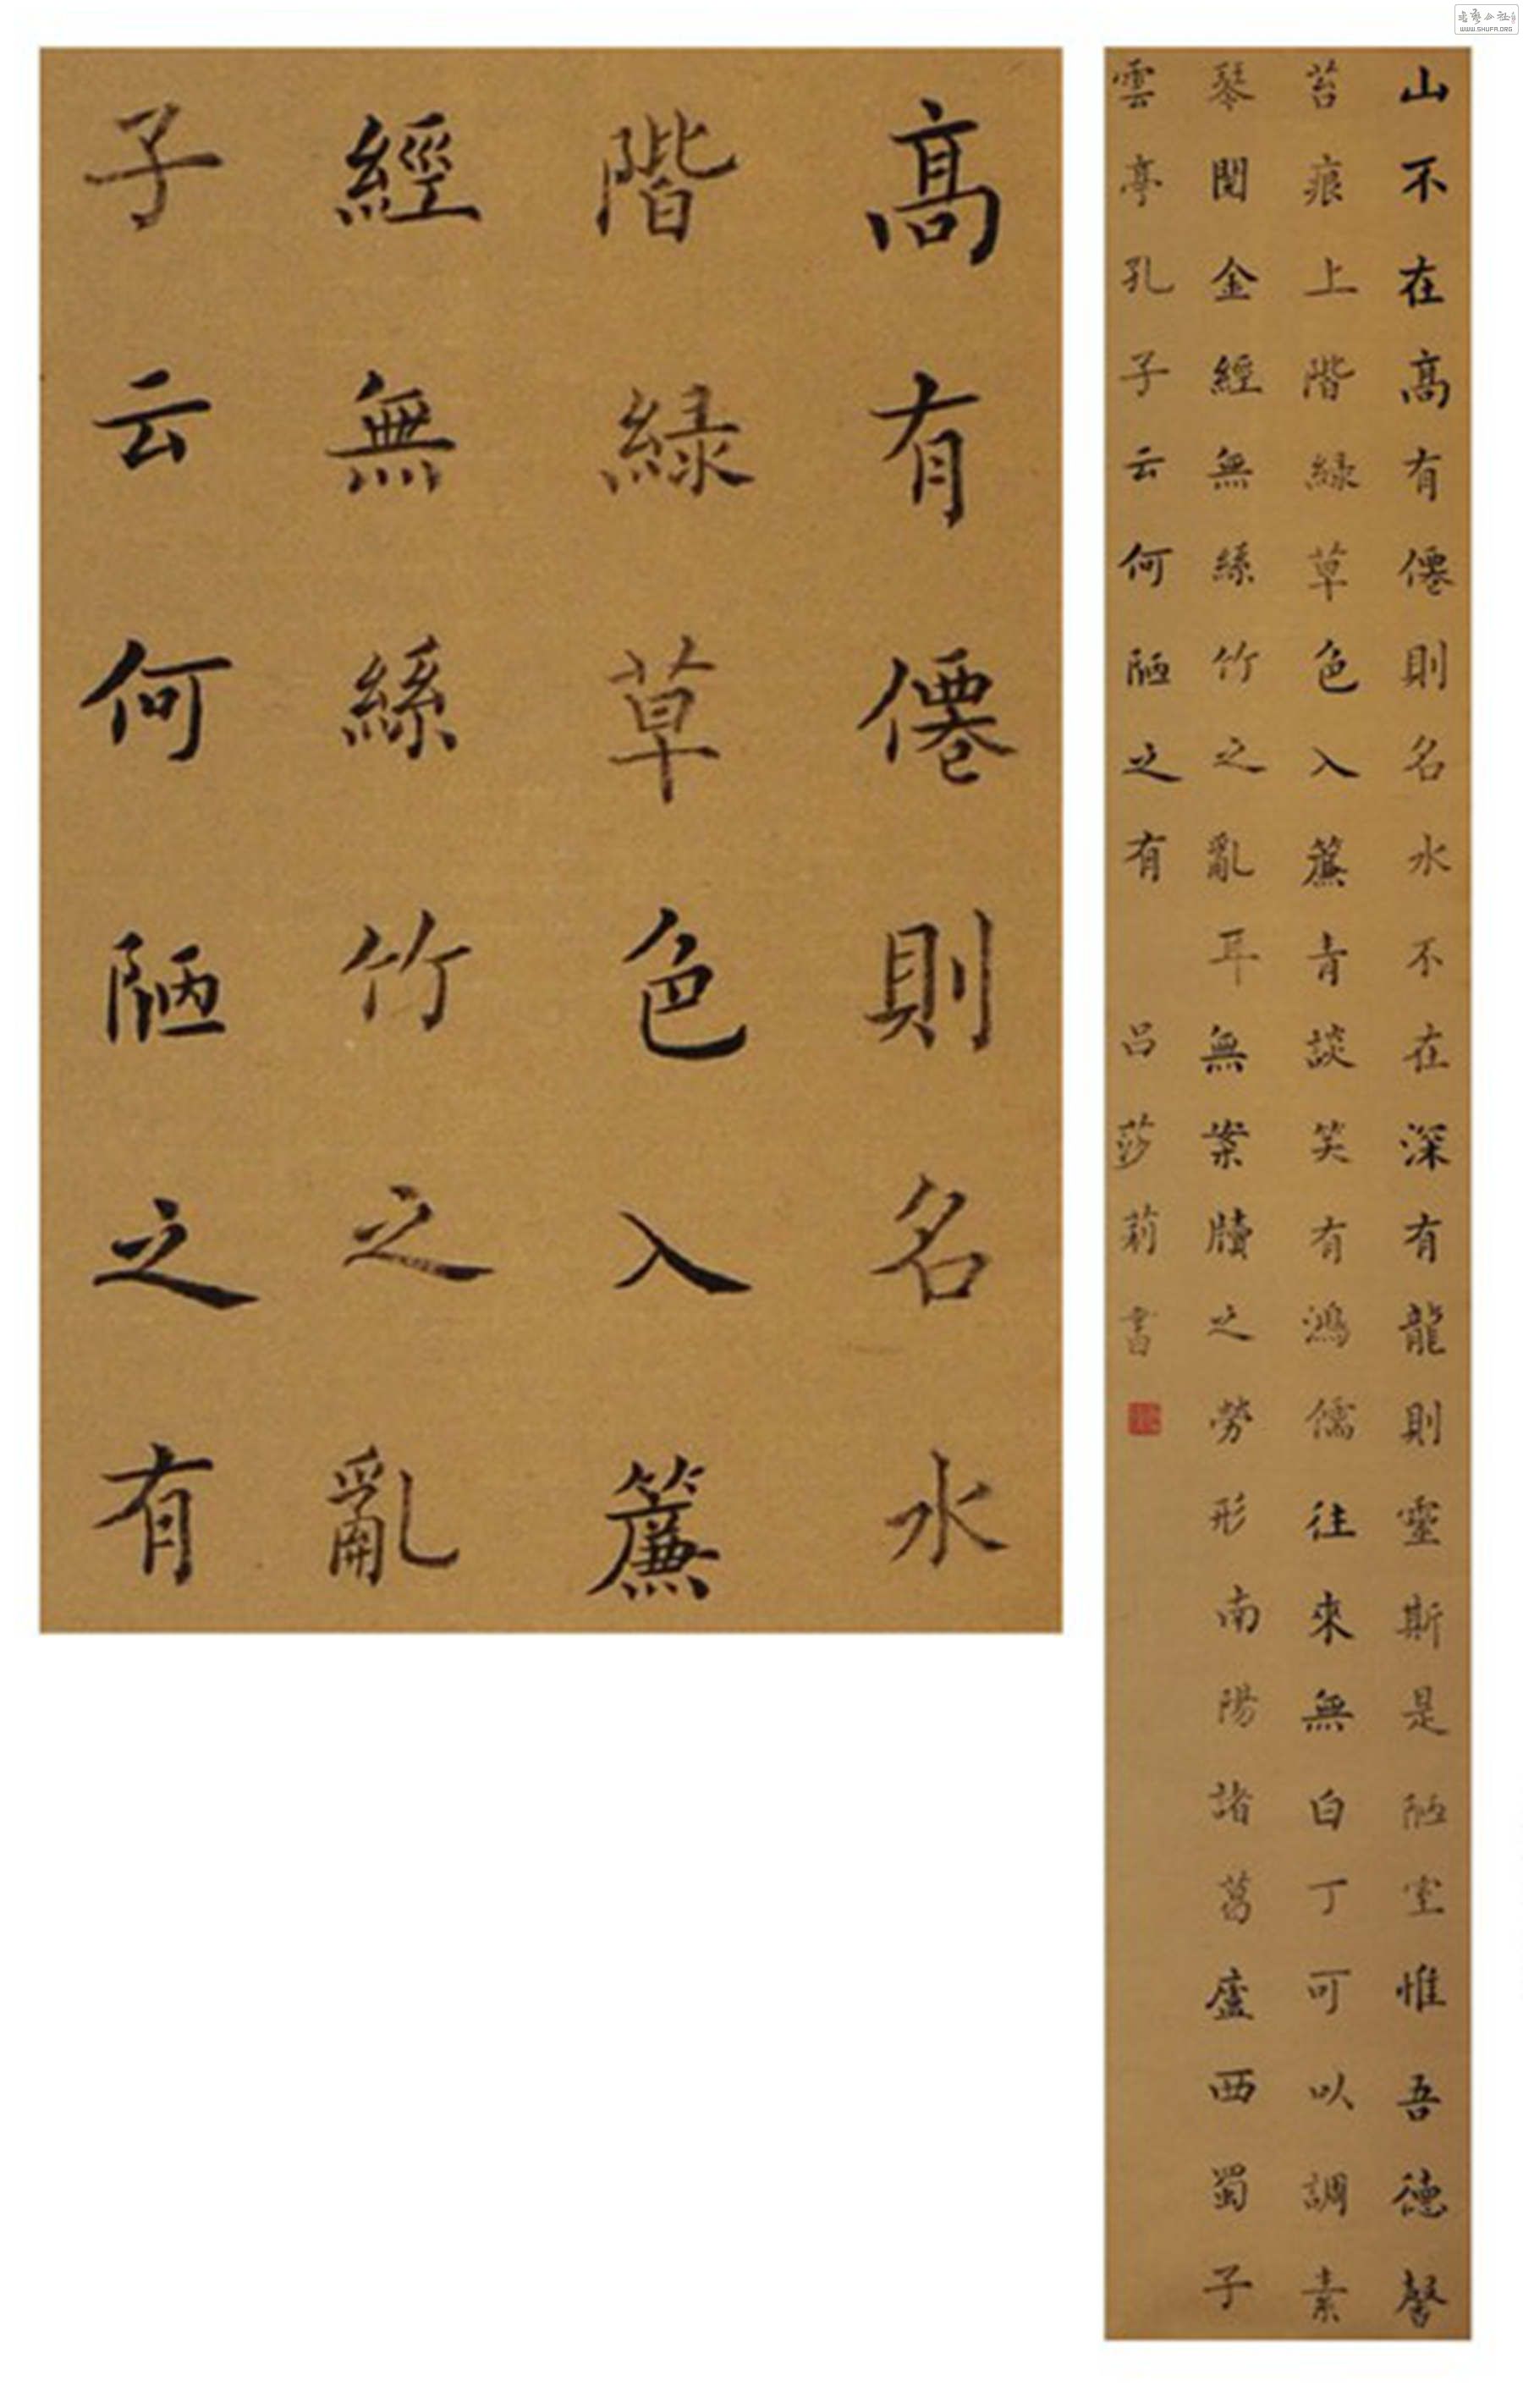 山不在髙有僊則名水不在深有龍則靈斯是陋室惟吾德馨
苔痕上階緑草色入簾青談笑有鴻儒往來無白丁可以調素
琴閱金經無絲竹之亂耳無案牘之勞形南陽諸葛廬西蜀子
雲亭孔子云何陋之有 呂莎莉書
髙有僊則名水
階緑草色入簾
經無絲竹之亂
子云何陋之有
WWW.SHUFA.ORG